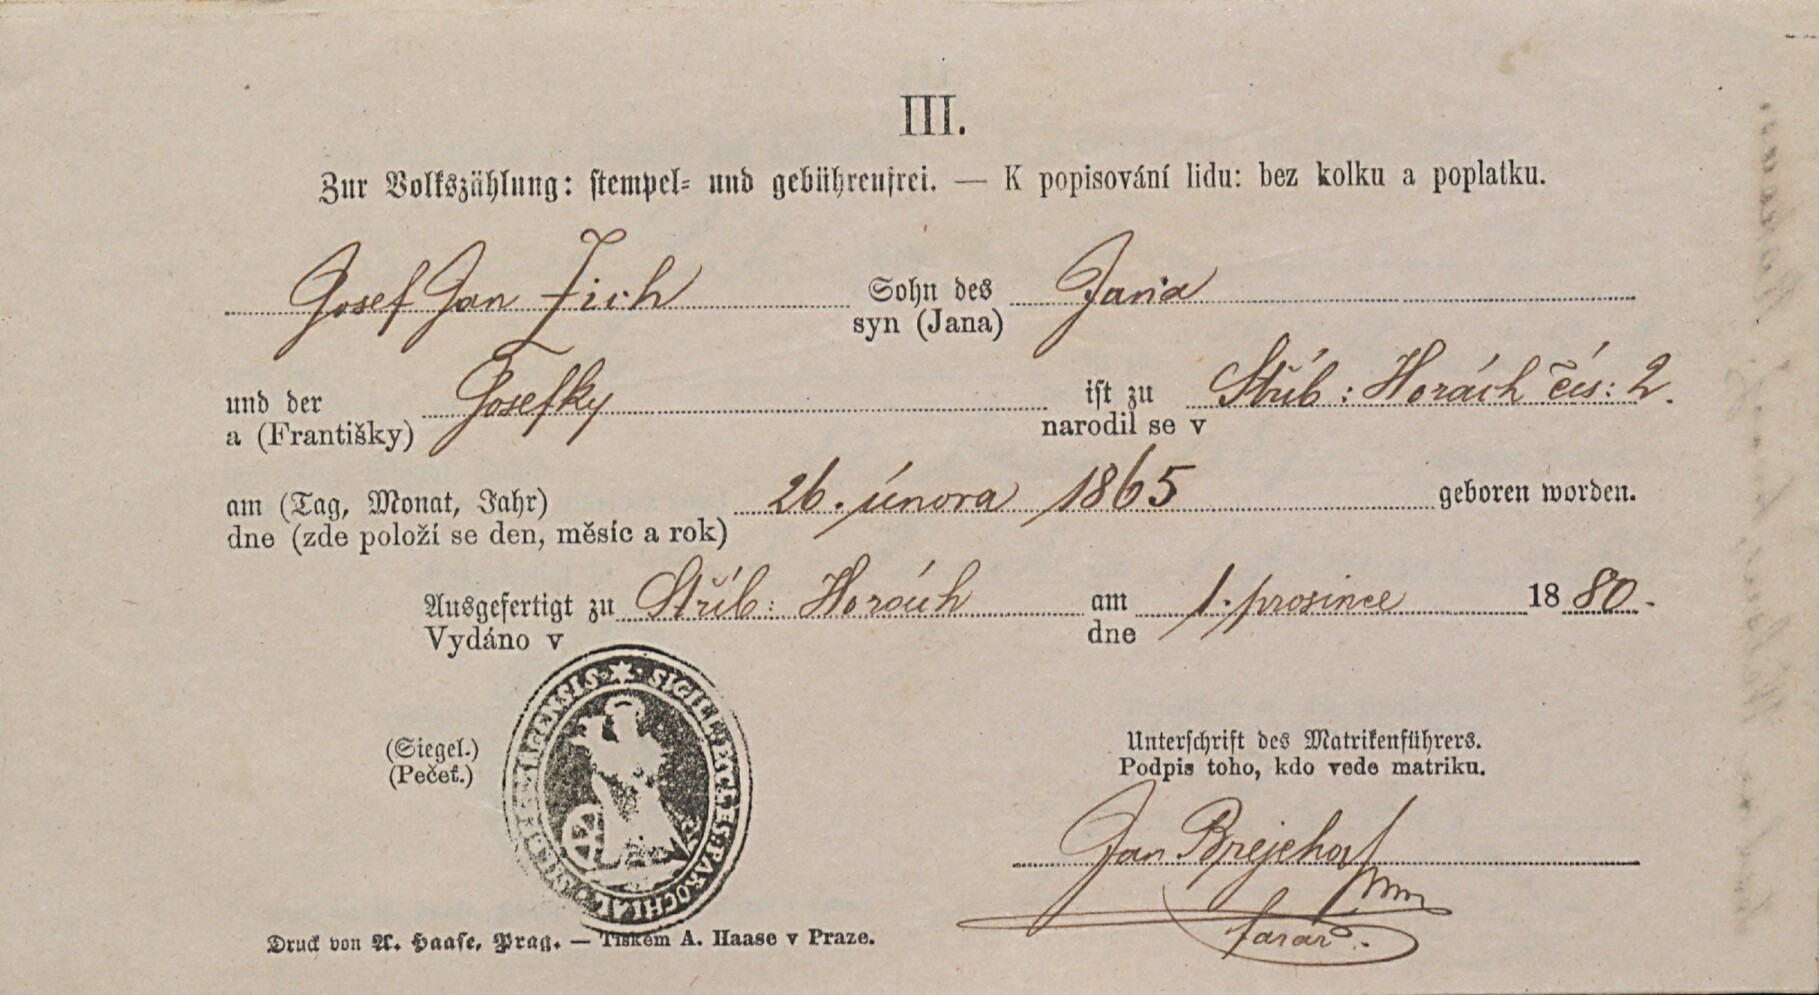 III.
Zur Volkszählung: stempel= und gebührenfrei. — K popisování lidu: bez kolku a poplatku.
Josef Jan Jich Sohn des Jana
syn (Jana)
und der Josefky ist zu Stříb: Horách čís: 2.
a (Františky) narodil se v
am (Tag, Monat, Jahr) 26. února 1865 geboren worden.
dne (zde položí se den, měsíc a rok)
Ausgefertigt zu Stříb: Horách am 1. prosince 1880.
Vydáno v dne
SIGILL. ECCLES. PAROCHIAL.
(Siegel.)
(Pečeť.)
Unterschrift des Matrikenführers.
Podpis toho, kdo vede matriku.
Jan
farar
Druck von A. Haase, Prag. — Tiskem A. Haase v Praze.